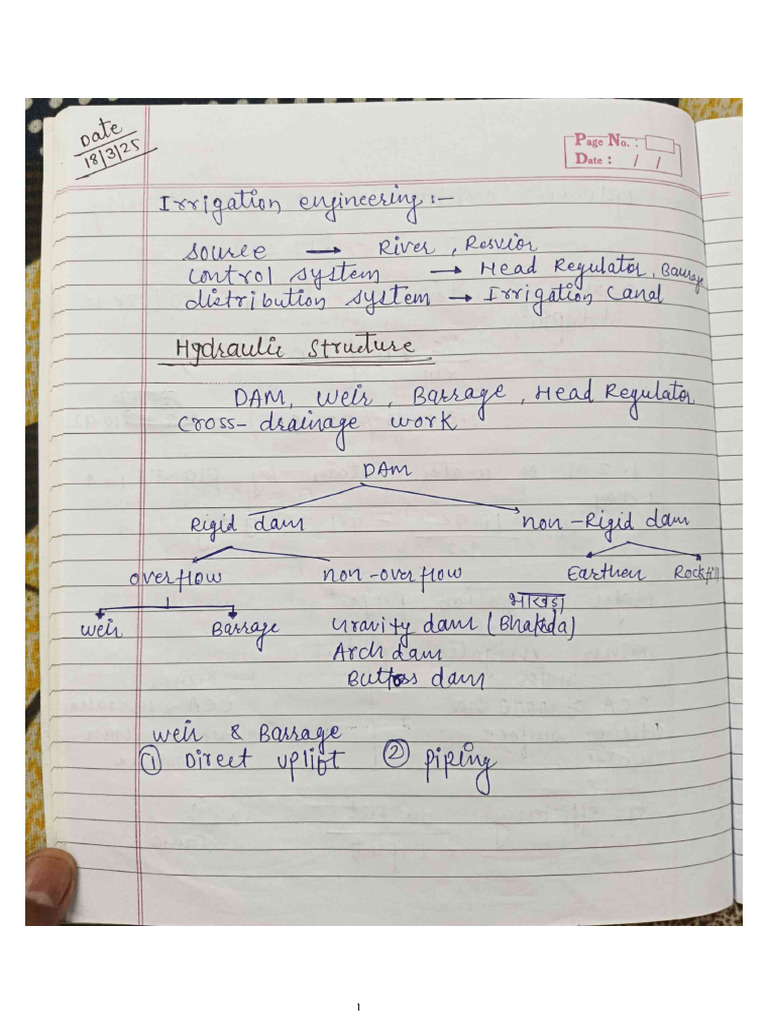 Date
18/3/25
Page No. :
Date : / /
Irrigation engineering :-
source → River, Resvior
control system → Head Regulator, Baurage
distribution system → Irrigation Canal
Hydraulic Structure
DAM, Weir, Barrage, Head Regulator
cross-drainage work
DAM
Rigid dam non-Rigid dam
overflow non-overflow Earthen Rockfill
भाखड़ा
weir Barrage Gravity dam (Bhakda)
Arch dam
Buttoss dam
weir & Barrage
① Direct uplift ② piping
1